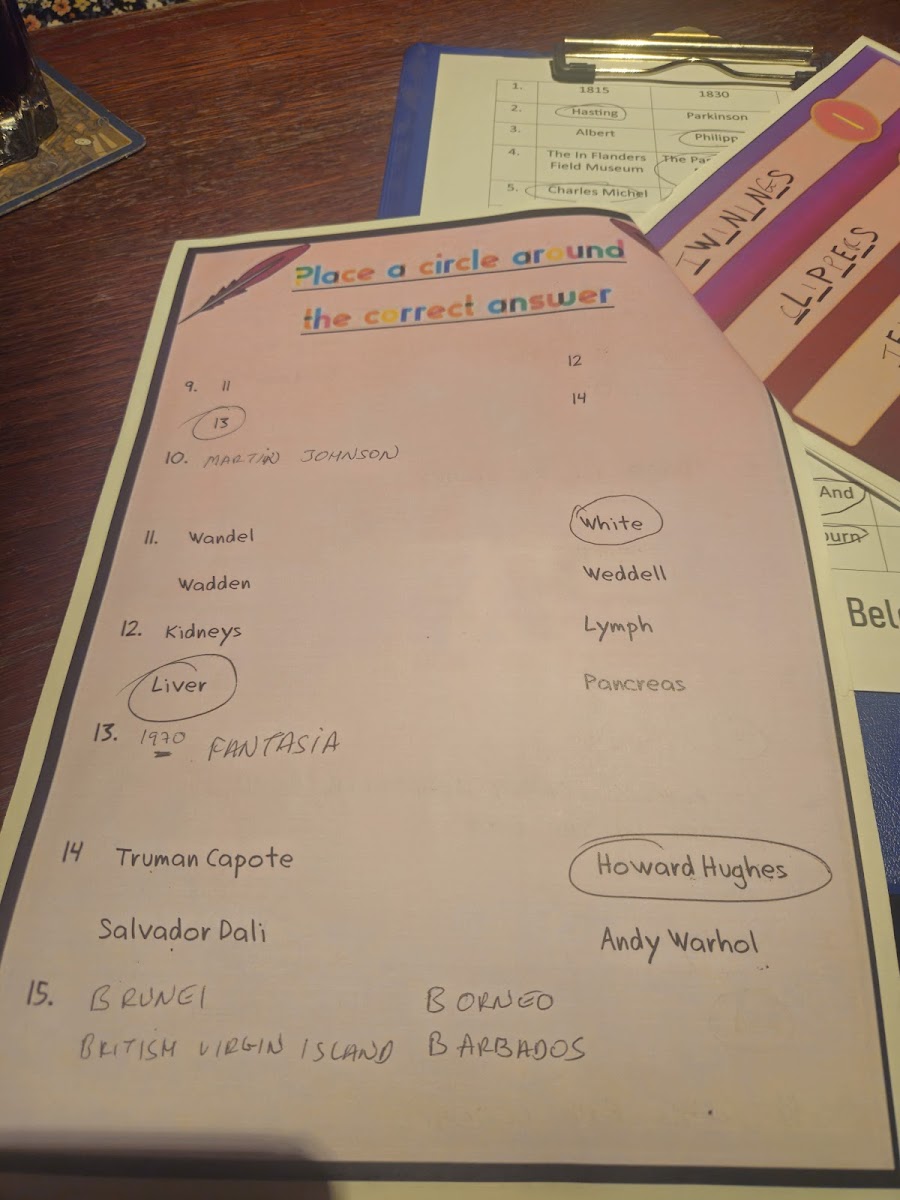 1. 1815 1830
2. Hasting Parkinson
3. Albert Philipp
4. The In Flanders The Par
Field Museum
5. Charles Michel
1
TWININGS
CLIPPERS
TE
Place a circle around
the correct answer
12
9. 11
14
13
10. MARTIN JOHNSON
11. Wandel White
Wadden Weddell
12. Kidneys Lymph
Liver Pancreas
13. 1970 FANTASIA
14 Truman Capote Howard Hughes
Salvador Dali Andy Warhol
15. BRUNEI BORNEO
BRITISH VIRGIN ISLAND BARBADOS
And
ourn
Bel